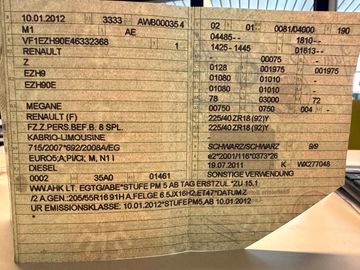 10.01.2012 3333 AWB00035 4
M1 AE
VF1EZH90E46332368 1
RENAULT
Z
EZH9
EZH90E
MEGANE
RENAULT (F)
FZ.Z.PERS.BEF.B. 8 SPL.
KABRIO-LIMOUSINE
715/2007*692/2008A/EG
EURO5;A;P/CI; M, N1 I
DIESEL
0002 35A0 01461
WW.AHK LT. EGTG/ABE*STUFE PM 5 AB TAG ERSTZUL.*ZU 15.1
/2 A.GEN.:205/55R16 91H A.FELGE 6.5JX16H2,ET47*DATUM Z
UR EMISSIONSKLASSE: 10.01.2012*STUFE PM5,AB 10.01.2012
02 01 0081/04000 190
04485-- 1810--
1425-1445 01613--
- 00075 -
0128 001975 -
01080 01010 -
01080 01010 -
78 03000 72
00750 0750 004 -
225/40 ZR18 (92)Y
225/40 ZR18 (92)Y
-
SCHWARZ/SCHWARZ 9/9
e2*2001/116*0373*26
19.07.2011 K WX277048
SONSTIGE VERWENDUNG